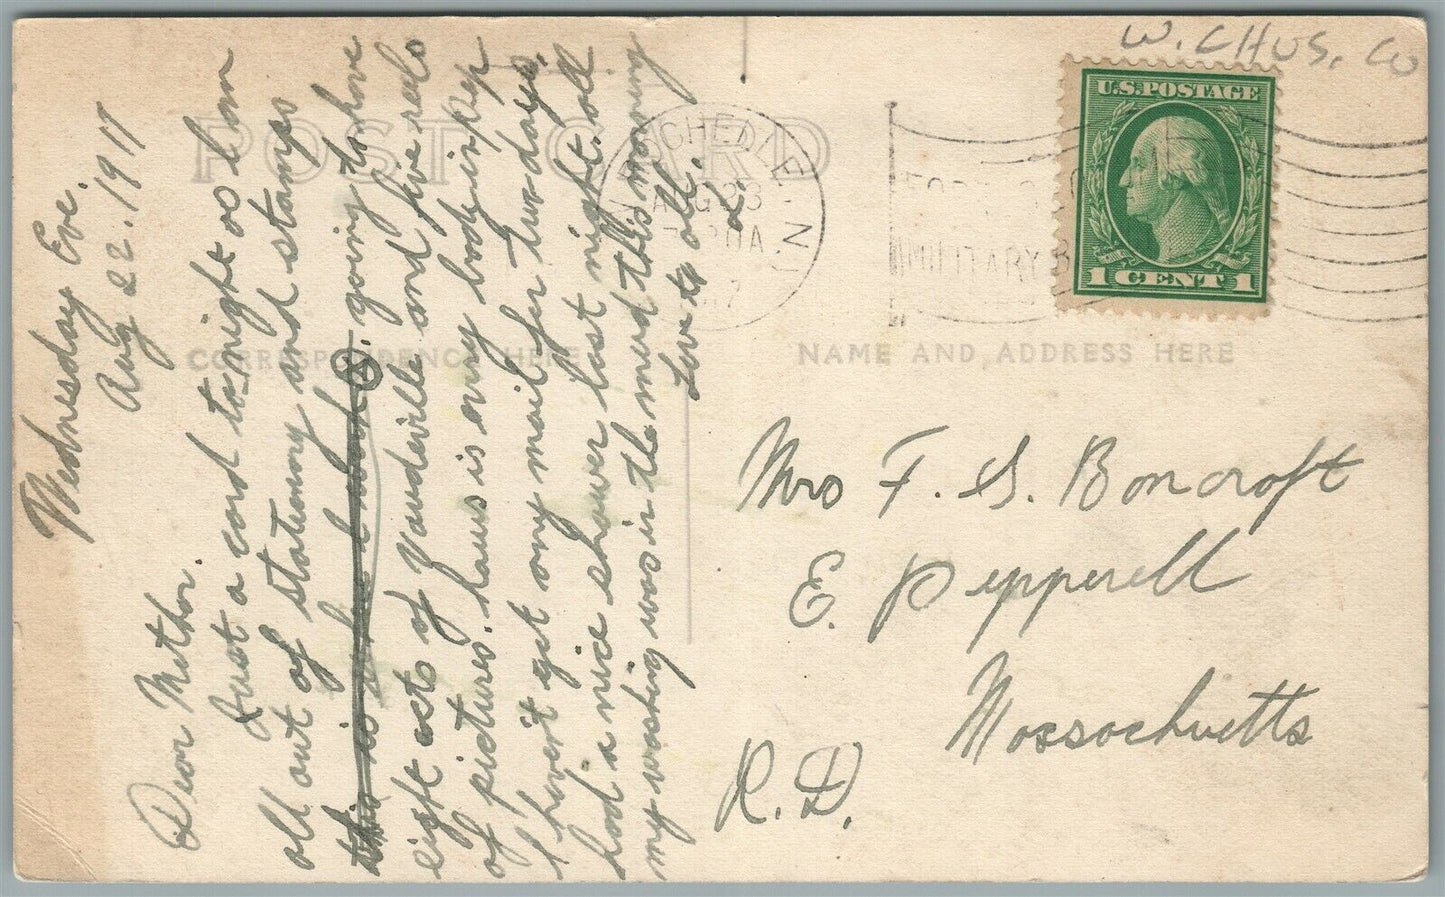 W. CHUS. CO
U.S. POSTAGE
1 CENT 1
POST CARD
AUG 23
MILITARY
CORRESPONDENCE HERE
NAME AND ADDRESS HERE
Wednesday Eve.
Aug 22. 1917
Dear Mother.
Just a card tonight as I am
all out of stationary and stamps
this is going to have
eight acts of Vaudeville and five reels
of pictures. is every body in pep
I haven't got any mail for two days.
had a nice shower last night. all
my washing was in the mud this morning
Love to all.
Mrs F. S. Boncroft
E. Pepperell
Massachuetts
R. D.